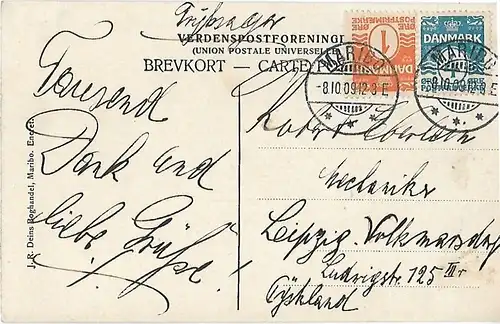 VERDENSPOSTFORENINGEN
(UNION POSTALE UNIVERSELLE)
BREVKORT — CARTE
1
DANMARK
DANMARK
MARIBO
-8.10.09.12-3 E
MARIBO
-8.10.09.12-3 E
Tausend
Dank und
liebe Grüße!
J. R. Deins Boghandel, Maribo. Eneret.
Robert
Mechaniker
Leipzig-Volkmarsdorf
Ludwigstr. 125 III r
Tyskland